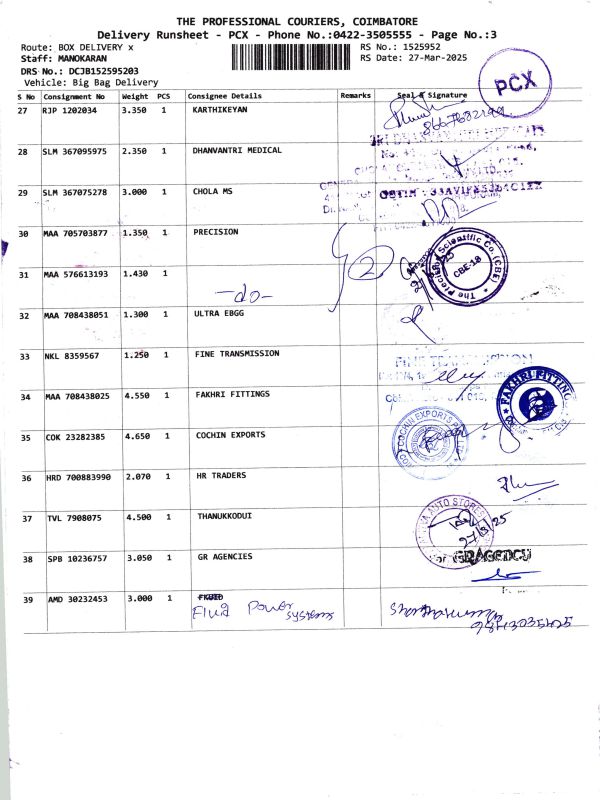 THE PROFESSIONAL COURIERS, COIMBATORE
Delivery Runsheet - PCX - Phone No.:0422-3505555 - Page No.:3
Route: BOX DELIVERY x
RS No.: 1525952
Staff: MANOKARAN
RS Date: 27-Mar-2025
DRS No.: DCJB152595203
Vehicle: Big Bag Delivery
PCX
S No Consignment No Weight PCS Consignee Details Remarks Seal & Signature
27 RJP 1202034 3.350 1 KARTHIKEYAN
28 SLM 367095975 2.350 1 DHANVANTRI MEDICAL
29 SLM 367075278 3.000 1 CHOLA MS
30 MAA 705703877 1.350 1 PRECISION
2
The Precision Scientific Co. (CBE)
CBE-18
31 MAA 576613193 1.430 1
-do-
32 MAA 708438051 1.300 1 ULTRA EBGG
33 NKL 8359567 1.250 1 FINE TRANSMISSION
FINE TRANSMISSION
34 MAA 708438025 4.550 1 FAKHRI FITTINGS
FAKHRI FITTING
35 COK 23282385 4.650 1 COCHIN EXPORTS
COCHIN EXPORTS
36 HRD 700883990 2.070 1 HR TRADERS
37 TVL 7908075 4.500 1 THANUKKODUI
AUTO STORES
27/3/25
38 SPB 10236757 3.050 1 GR AGENCIES
For GR AGENCY
39 AMD 30232453 3.000 1
Fluid Power
systems